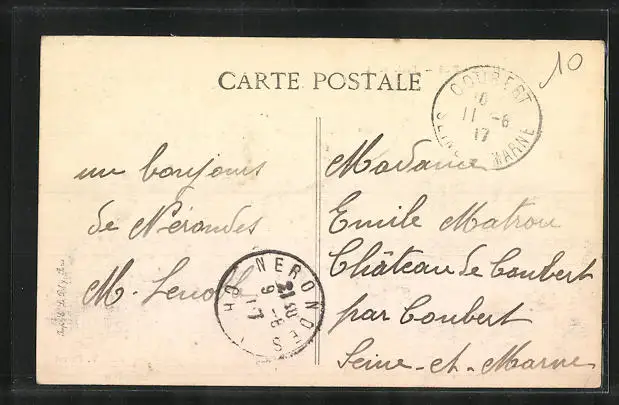 CARTE POSTALE
10
COUBERT
10
11 -6
17
SEINE MARNE
un bonjour
de Nérondes
M. Lenoble
NERONDES
21 30
9 -8
17
Madame
Emile Matrou
Château de Coubert
par Coubert
Seine-et-Marne